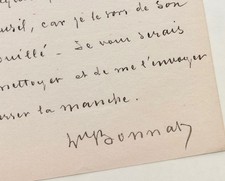 car je le sors de son
ouillé - Je vous serais
nettoyer et de me l'envoyer
la manche.
Bonnat